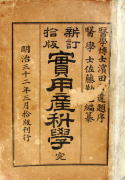 醫學博士濱田玄達題序
醫學士佐藤勤也編纂
新訂拾版
實用産科學 完
明治三十二年三月拾版刊行